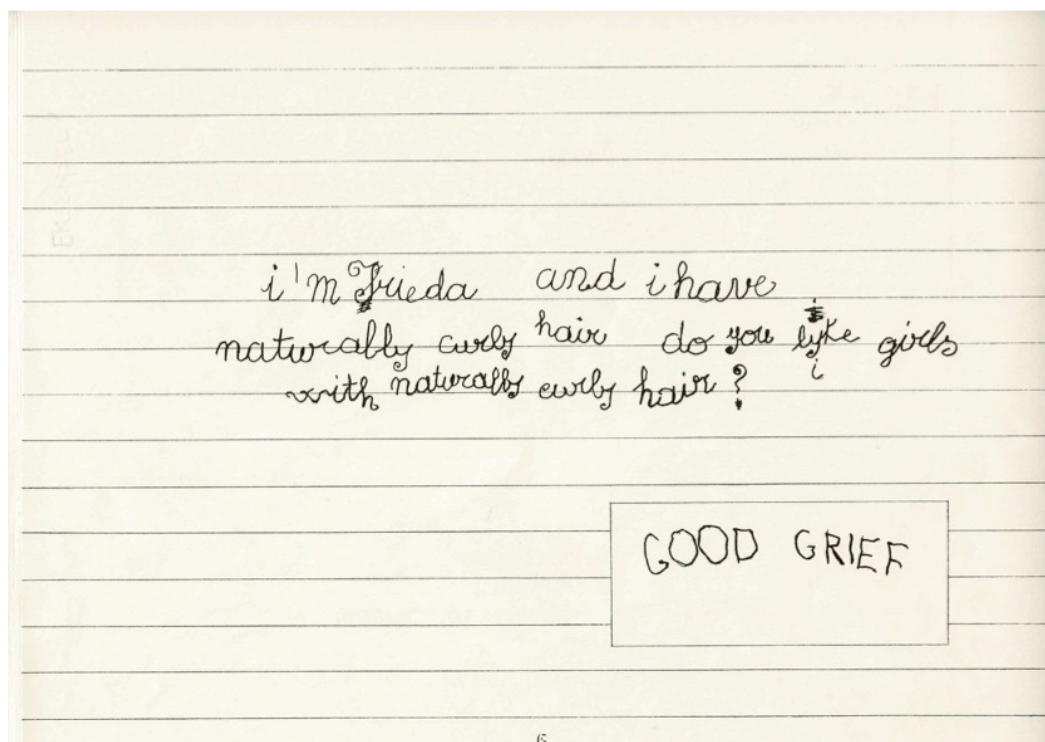 i'm Frieda and i have
naturally curly hair do you lyke girls
i
with naturally curly hair?
GOOD GRIEF
6